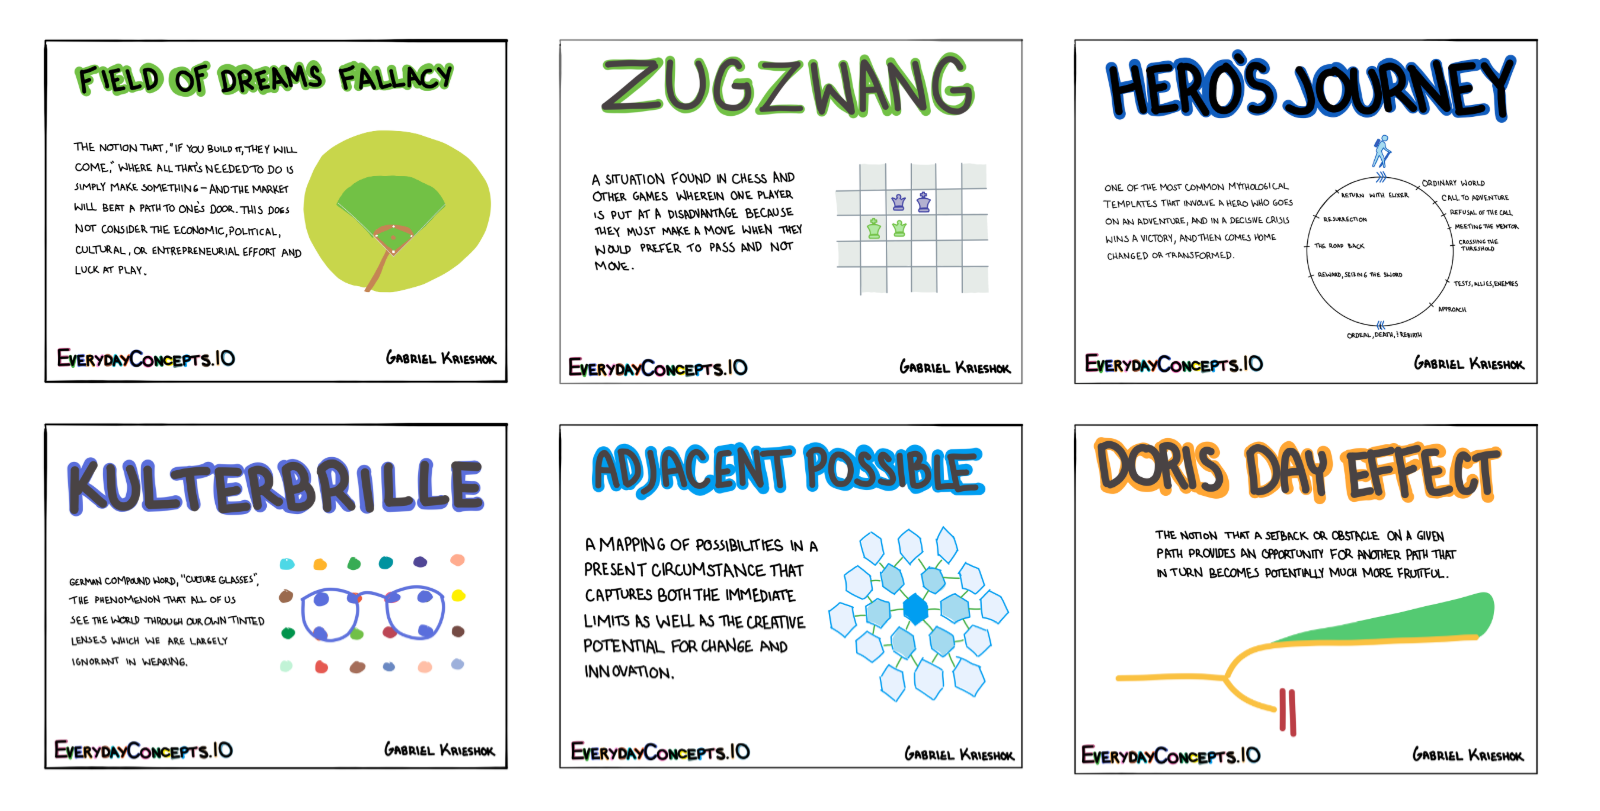 FIELD OF DREAMS FALLACY
THE NOTION THAT, "IF YOU BUILD IT, THEY WILL
COME," WHERE ALL THAT'S NEEDED TO DO IS
SIMPLY MAKE SOMETHING - AND THE MARKET
WILL BEAT A PATH TO ONE'S DOOR. THIS DOES
NOT CONSIDER THE ECONOMIC, POLITICAL,
CULTURAL, OR ENTREPRENEURIAL EFFORT AND
LUCK AT PLAY.
EVERYDAYCONCEPTS.IO
GABRIEL KRIESHOK
ZUGZWANG
A SITUATION FOUND IN CHESS AND
OTHER GAMES WHEREIN ONE PLAYER
IS PUT AT A DISADVANTAGE BECAUSE
THEY MUST MAKE A MOVE WHEN THEY
WOULD PREFER TO PASS AND NOT
MOVE.
EVERYDAYCONCEPTS.IO
GABRIEL KRIESHOK
HERO'S JOURNEY
ONE OF THE MOST COMMON MYTHOLOGICAL
TEMPLATES THAT INVOLVE A HERO WHO GOES
ON AN ADVENTURE, AND IN A DECISIVE CRISIS
WINS A VICTORY, AND THEN COMES HOME
CHANGED OR TRANSFORMED.
ORDINARY WORLD
CALL TO ADVENTURE
REFUSAL OF THE CALL
MEETING THE MENTOR
CROSSING THE
THRESHOLD
TESTS, ALLIES, ENEMIES
APPROACH
ORDEAL, DEATH, & REBIRTH
REWARD, SEIZING THE SWORD
THE ROAD BACK
RESURRECTION
RETURN WITH ELIXER
EVERYDAYCONCEPTS.IO
GABRIEL KRIESHOK
KULTERBRILLE
GERMAN COMPOUND WORD, "CULTURE GLASSES",
THE PHENOMENON THAT ALL OF US
SEE THE WORLD THROUGH OUR OWN TINTED
LENSES WHICH WE ARE LARGELY
IGNORANT IN WEARING.
EVERYDAYCONCEPTS.IO
GABRIEL KRIESHOK
ADJACENT POSSIBLE
A MAPPING OF POSSIBILITIES IN A
PRESENT CIRCUMSTANCE THAT
CAPTURES BOTH THE IMMEDIATE
LIMITS AS WELL AS THE CREATIVE
POTENTIAL FOR CHANGE AND
INNOVATION.
EVERYDAYCONCEPTS.IO
GABRIEL KRIESHOK
DORIS DAY EFFECT
THE NOTION THAT A SETBACK OR OBSTACLE ON A GIVEN
PATH PROVIDES AN OPPORTUNITY FOR ANOTHER PATH THAT
IN TURN BECOMES POTENTIALLY MUCH MORE FRUITFUL.
EVERYDAYCONCEPTS.IO
GABRIEL KRIESHOK